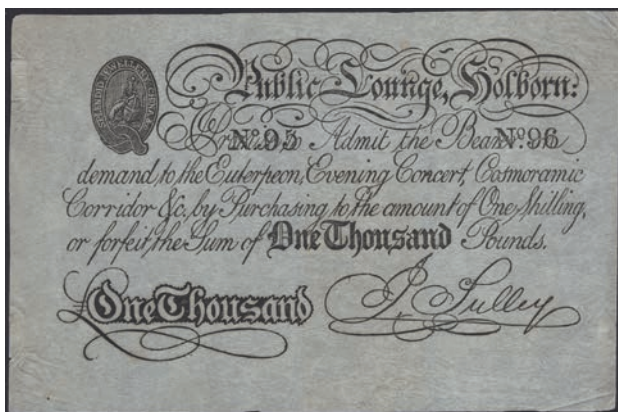 SPLENDID JEWELLERY, CHINA &c
Public Lounge, Holborn:
Promise to Admit the Bearer on
No. 95 No. 96
demand, to the Euterpeon, Evening Concert, Cosmoramic
Corridor &c, by Purchasing to the amount of One Shilling,
or forfeit, the Sum of One Thousand Pounds.
£One Thousand J. Sulley